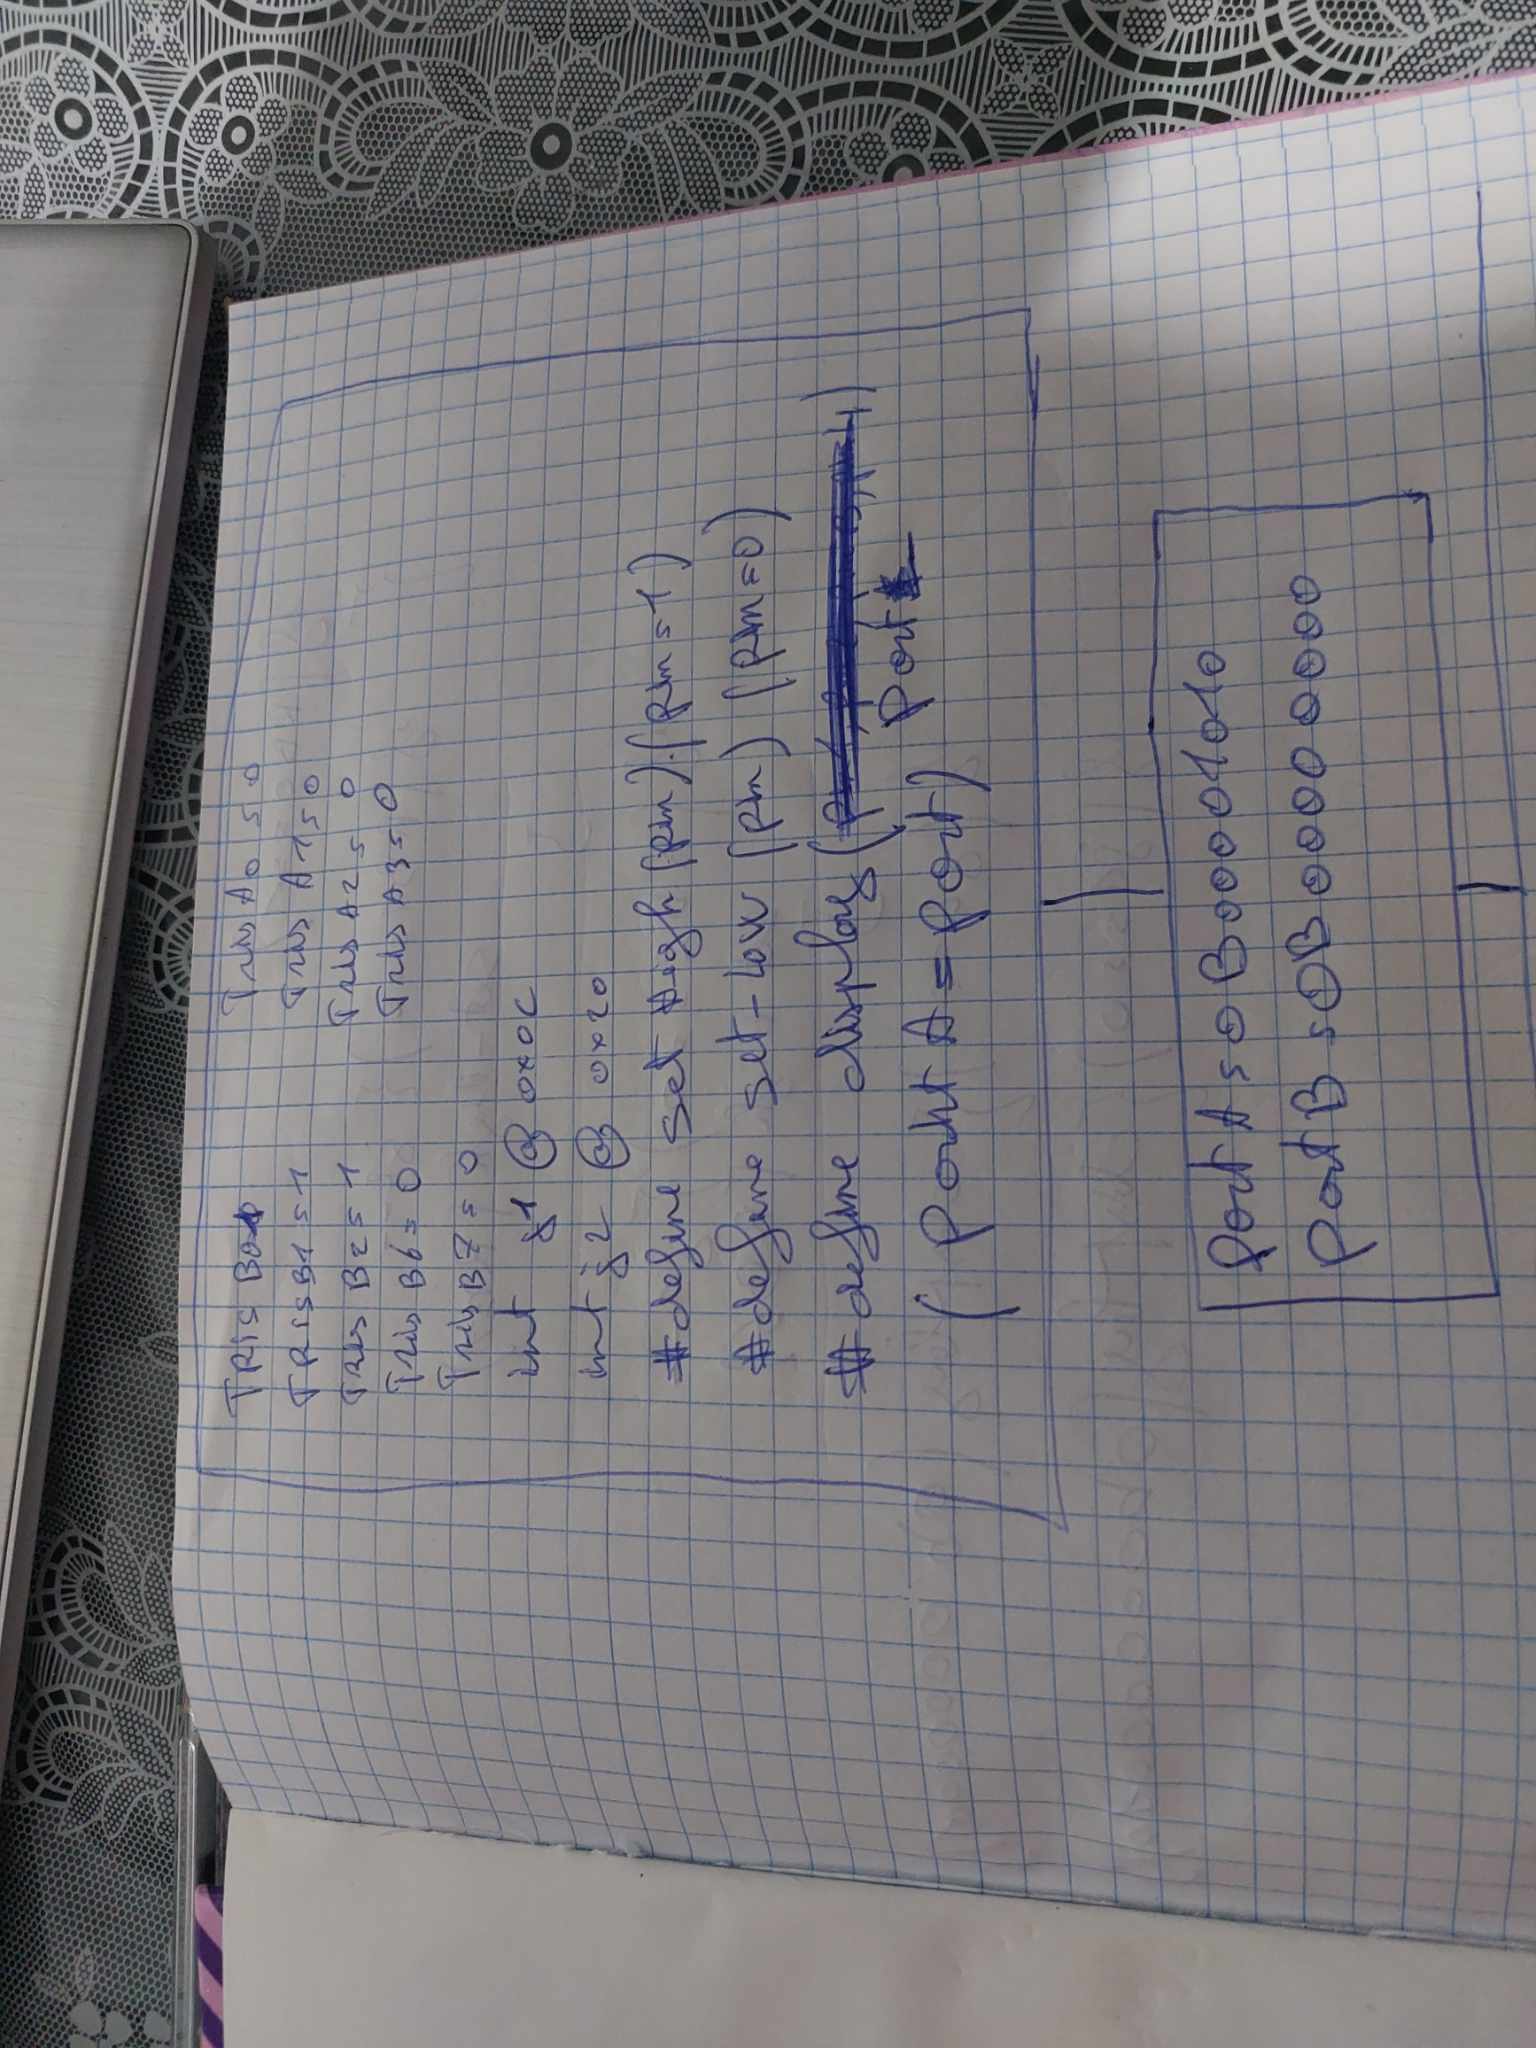 TRIS B0
TRISB1 = 1
Tris B2 = 1
Tris B6 = 0
Tris B7 = 0
Tris A0 = 0
Tris A1 = 0
Tris A2 = 0
Tris A3 = 0
int j1 @ 0x0C
int j2 @ 0x20
#define set High (pin).(pin = 1)
#define set-Low (pin) (pin = 0)
#define display ( )
Port
( Port A = Port)
Port A = 0B00001010
Port B = 0B00000000